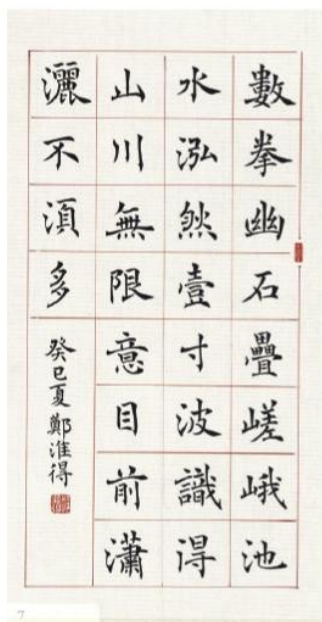 數拳幽石疊嵯峨池
水泓然壹寸波識得
山川無限意目前瀟
灑不須多
癸巳夏鄭淮得
7